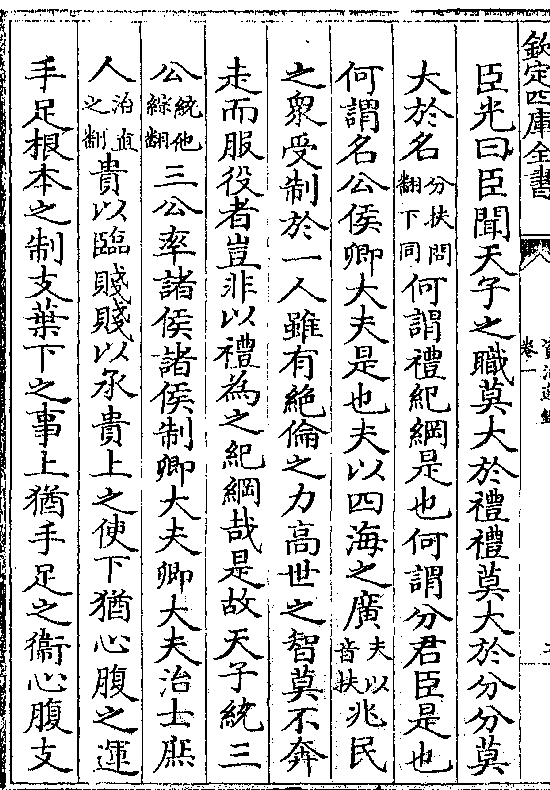 欽定四庫全書
資治通鑑
卷一
臣光曰臣聞天子之職莫大於禮禮莫大於分分莫
大於名分扶問翻下同何謂禮紀綱是也何謂分君臣是也
何謂名公侯卿大夫是也夫以四海之廣夫以音扶兆民
之衆受制於一人雖有絶倫之力高世之智莫不奔
走而服役者豈非以禮為之紀綱哉是故天子統三
公統他綜翻三公率諸侯諸侯制卿大夫卿大夫治士庶
人治直之翻貴以臨賤賤以承貴上之使下猶心腹之運
手足根本之制支葉下之事上猶手足之衞心腹支